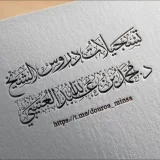 تسجيلات دروس الشيخ
د. محمد بن عبدالله العتيبي
https://t.me/doroos_minsa